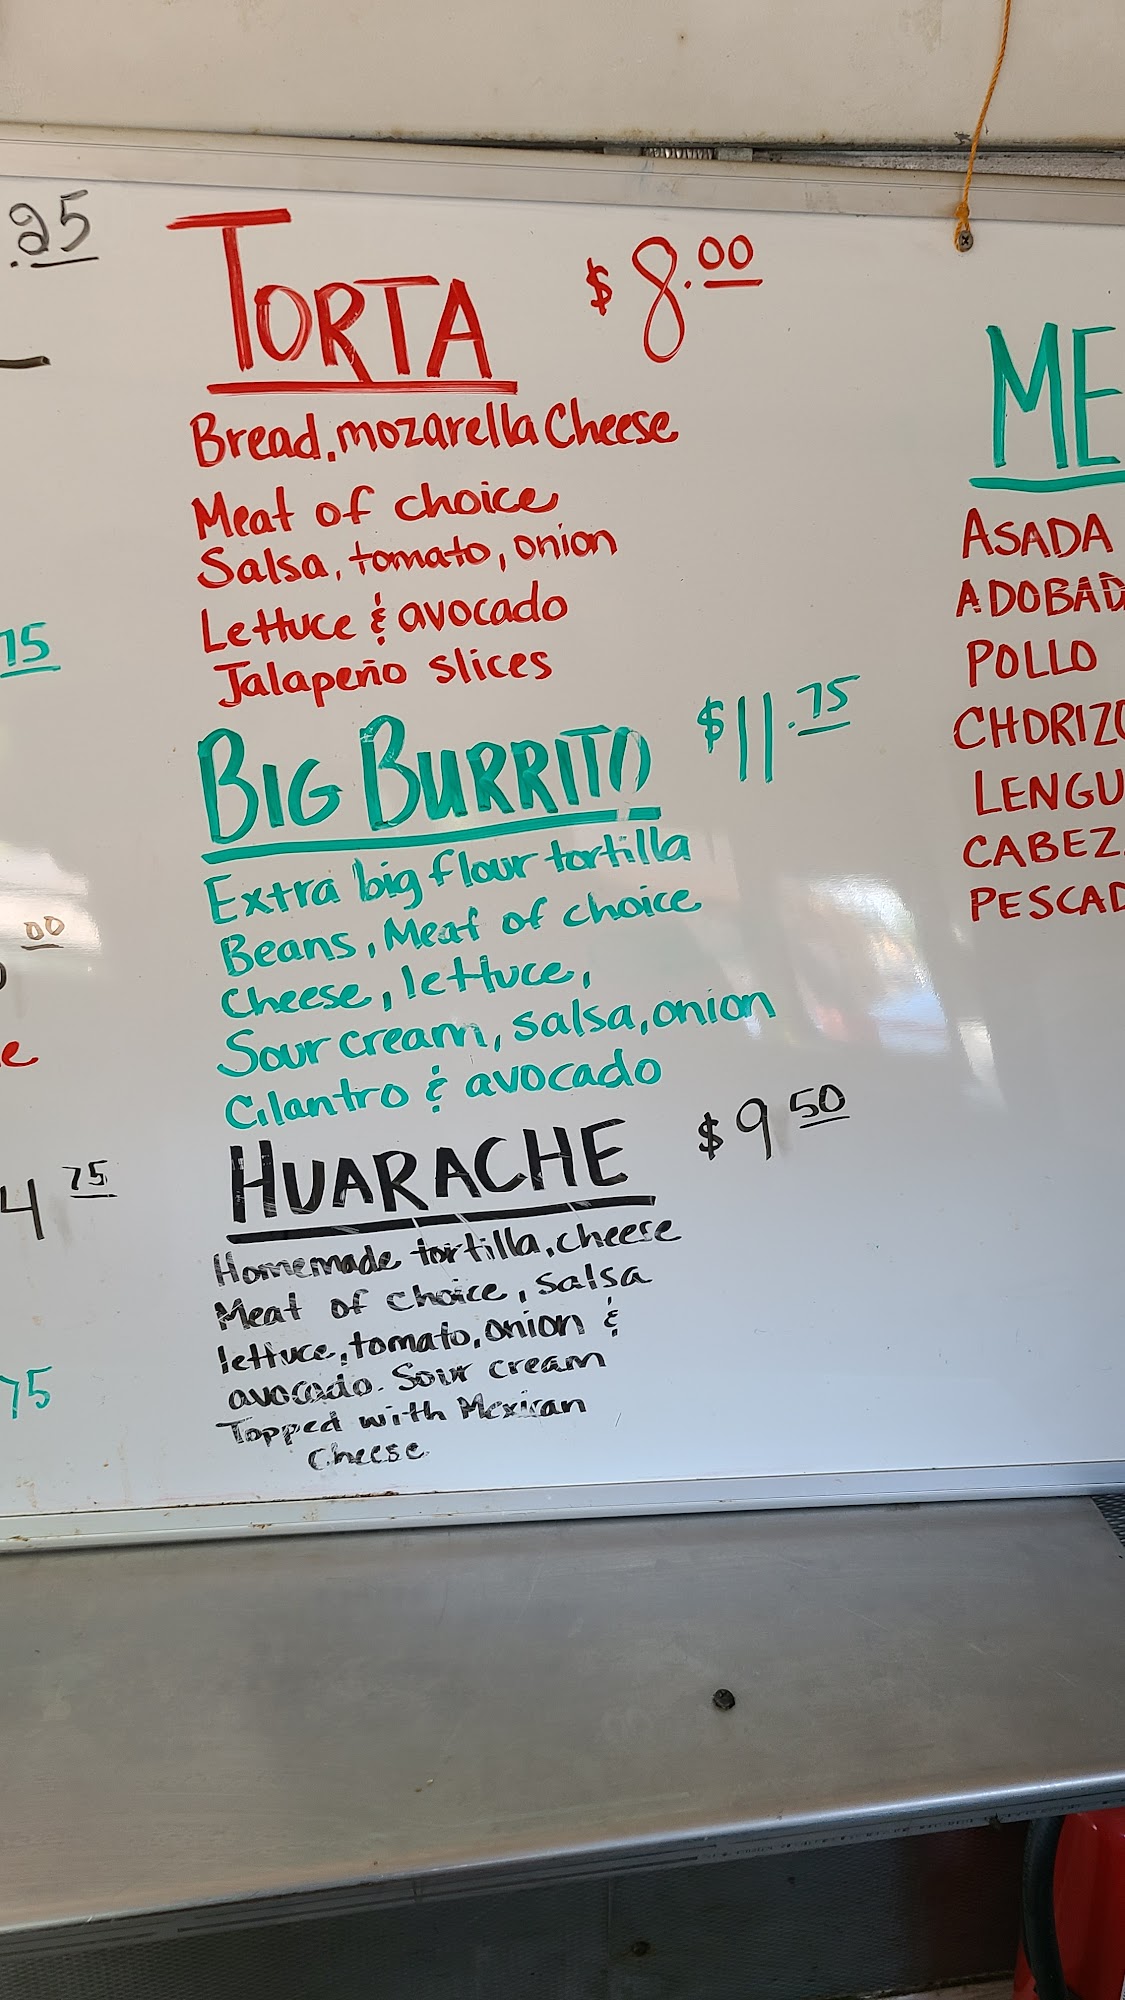 .25
TORTA $8.00
Bread, mozarella Cheese
Meat of choice
Salsa, tomato, onion
Lettuce & avocado
Jalapeño slices
75
BIG BURRITO $11.75
Extra big flour tortilla
Beans, Meat of choice
Cheese, lettuce,
Sour cream, salsa, onion
Cilantro & avocado
00
e
HUARACHE $9 50
Homemade tortilla, cheese
Meat of choice, Salsa
lettuce, tomato, onion &
avocado. Sour cream
Topped with Mexican
Cheese
4 75
75
ME
ASADA
ADOBAD
POLLO
CHORIZO
LENGU
CABEZ
PESCAD